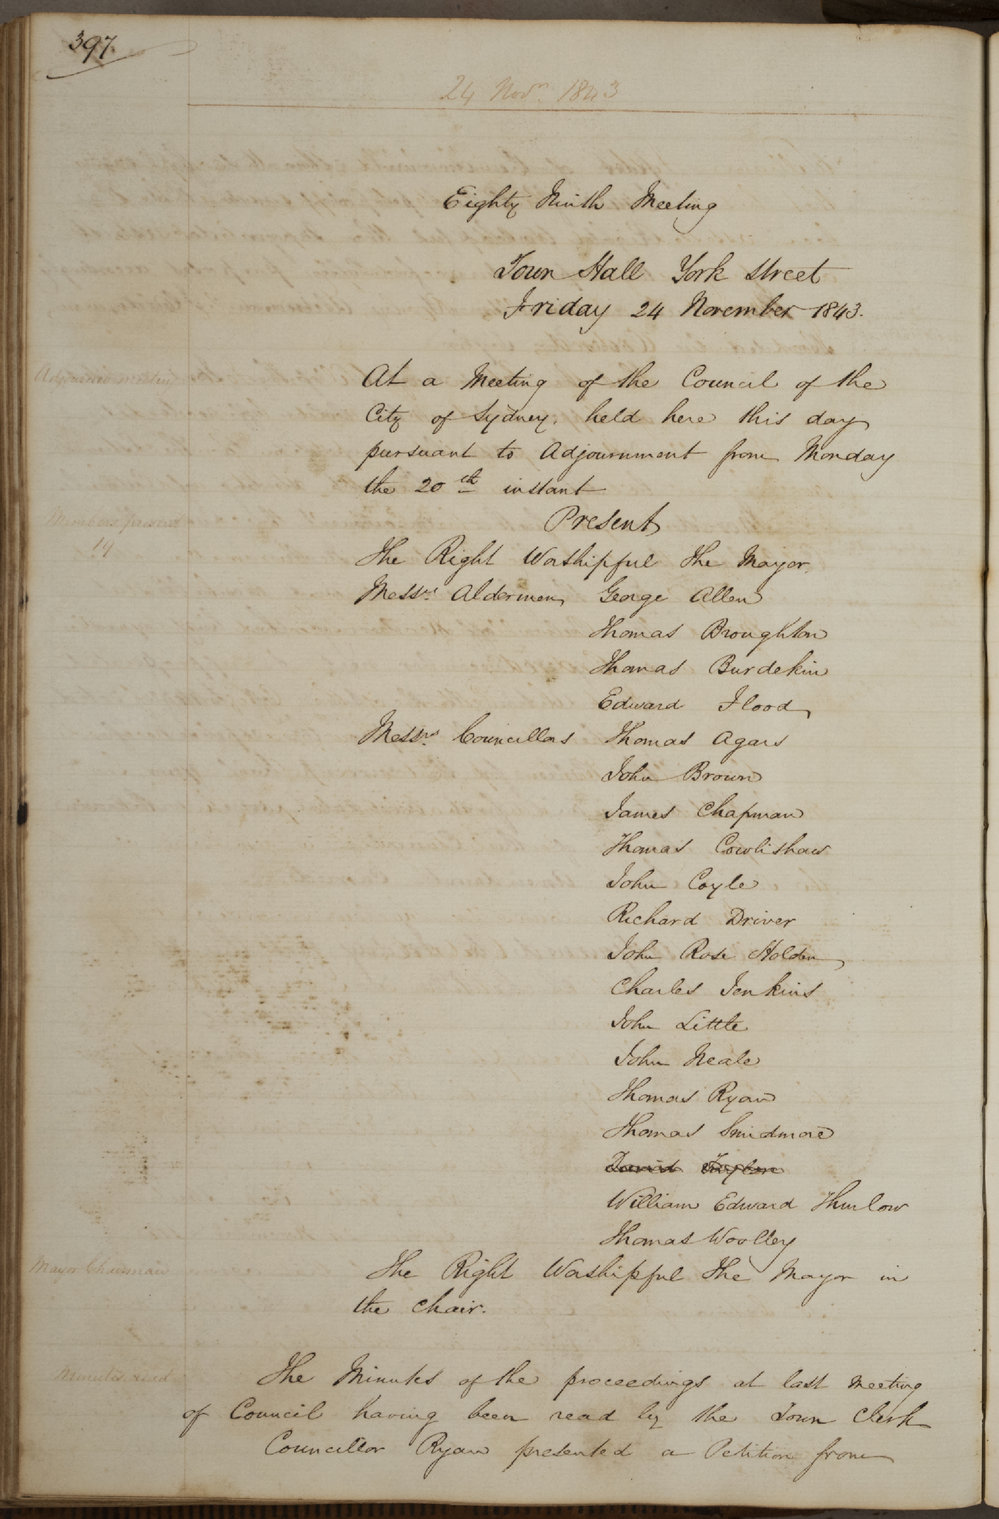 397.
24 Novr. 1843
Eighty Ninth Meeting
Town Hall York Street
Friday 24 November 1843.
Adjourned meeting
At a Meeting of the Council of the
City of Sydney, held here this day
pursuant to Adjournment from Monday
the 20th instant
Present
Members present
19
The Right Worshipful The Mayor.
Messrs. Aldermen George Allen
Thomas Broughton
Thomas Burdekin
Edward Flood
Messrs. Councillors Thomas Agars
John Brown
James Chapman
Thomas Cowlishaw
John Coyle
Richard Driver
John Rose Holden
Charles Jenkins
John Little
John Neale
Thomas Ryan
Thomas Smidmore
David Taylor
William Edward Thurlow
Thomas Woolley
Mayor Chairman
The Right Worshipful The Mayor in
the chair.
Minutes read
The Minutes of the proceedings at last Meeting
of Council having been read by the Town Clerk
Councillor Ryan presented a Petition from